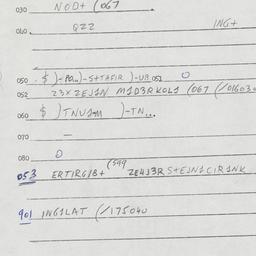 030 NOD+ (067
040 GZZ ING+
050 - $ )-PQ..)-S+TAFIR )-UB 051 O
052 23XZEJ1N M1D3RKOL1 (067 (/01603
060 $ )TNU2-M )-TN...
070 -
080 O
053 ERTIRGJB+ (599 ZE4J3R S+EJN1CIR1NK
901 ING1LAT (/175040